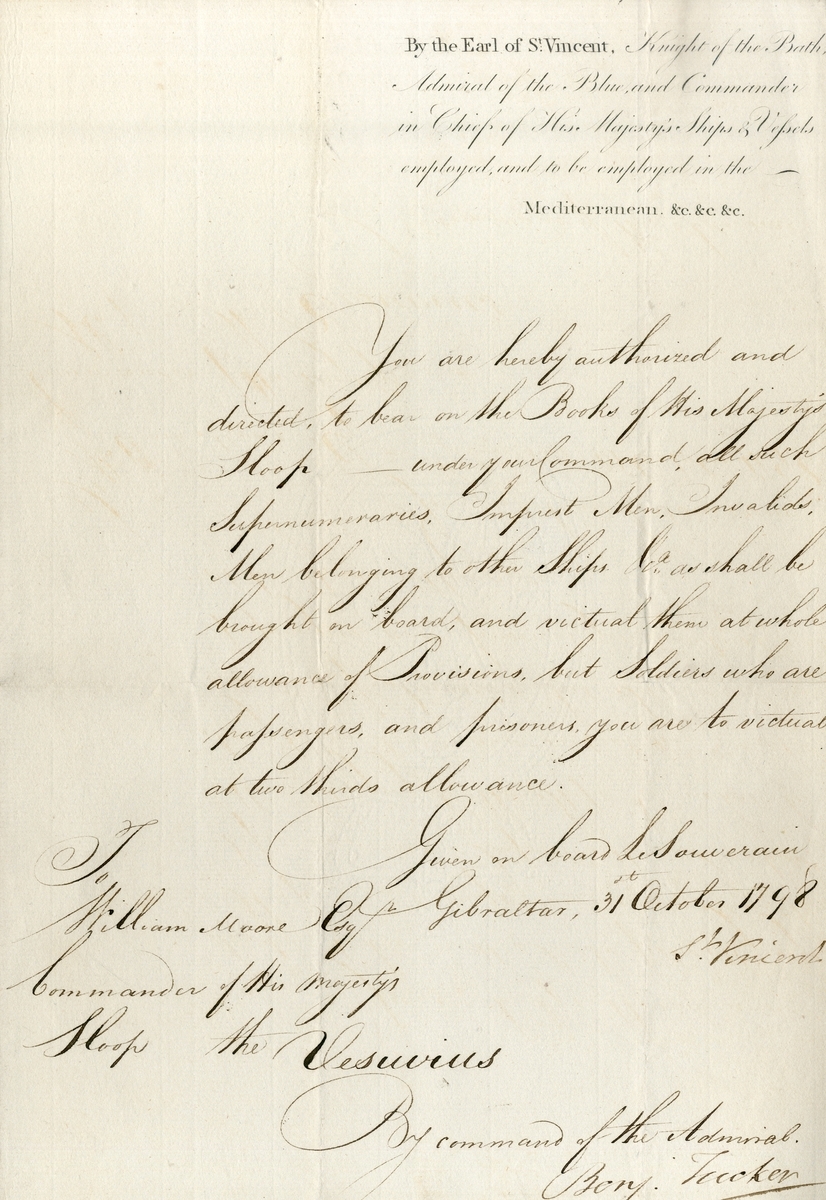 By the Earl of St. Vincent, Knight of the Bath,
Admiral of the Blue, and Commander
in Chief of His Majesty's Ships & Vessels
employed, and to be employed in the —
Mediterranean. &c. &c. &c.
You are hereby authorized and
directed, to bear on the Books of His Majesty's
Sloop — under your Command, all such
Supernumeraries, Imprest Men, Invalids,
Men belonging to other Ships &ca. as shall be
brought on board, and victual them at whole
allowance of Provisions, but Soldiers who are
passengers, and prisoners, you are to victual
at two thirds allowance.
Given on board Le Souverain
Gibraltar, 31st October 1798
St. Vincent
To
William Moore Esqr
Commander of His Majesty's
Sloop the Vesuvius
By command of the Admiral.
Benj. Tucker